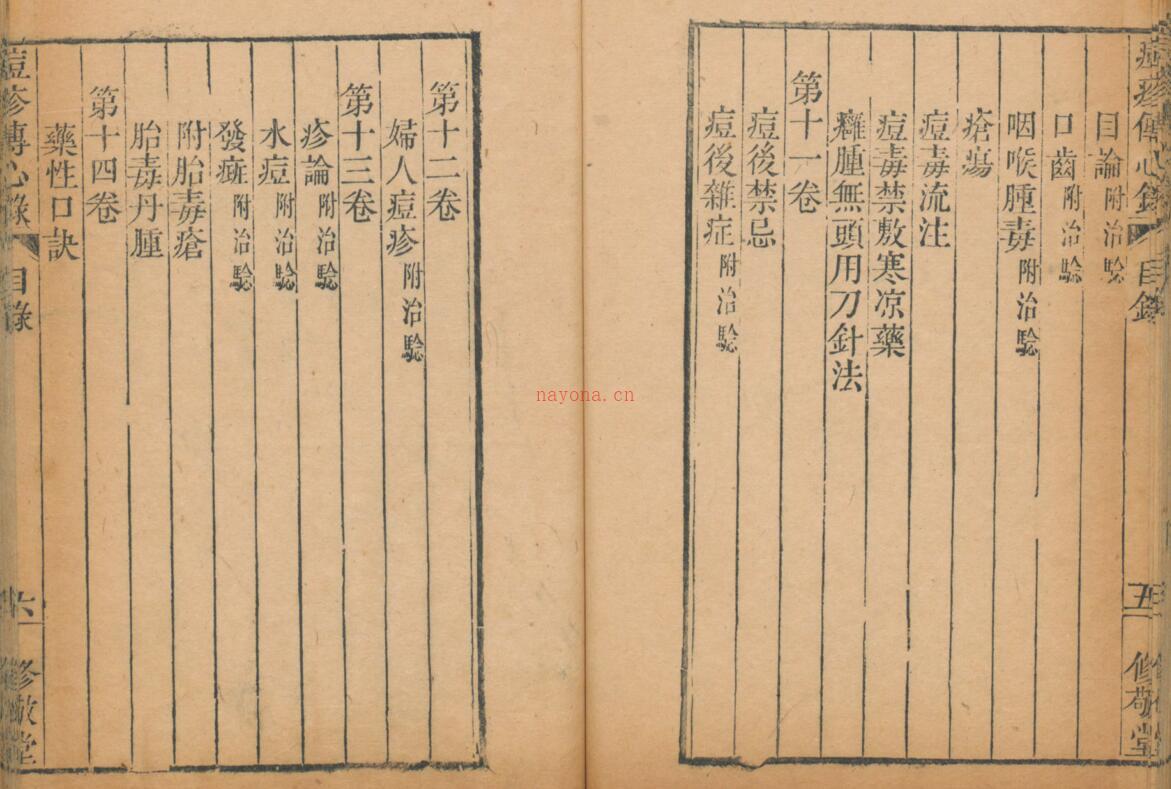 痘疹傳心錄 目錄 五 修敬堂
目論 附治騐
口齒 附治騐
咽喉腫毒 附治騐
瘡瘍
痘毒流注
痘毒禁敷寒凉藥
癰腫無頭用刀針法
第十一卷
痘後禁忌
痘後雜症 附治騐
第十二卷
婦人痘疹 附治騐
第十三卷
疹論 附治騐
水痘 附治騐
發瘢 附治騐
附胎毒瘡
胎毒丹腫
第十四卷
藥性口訣
痘疹傳心錄 目錄 六 修敬堂
nayona.cn